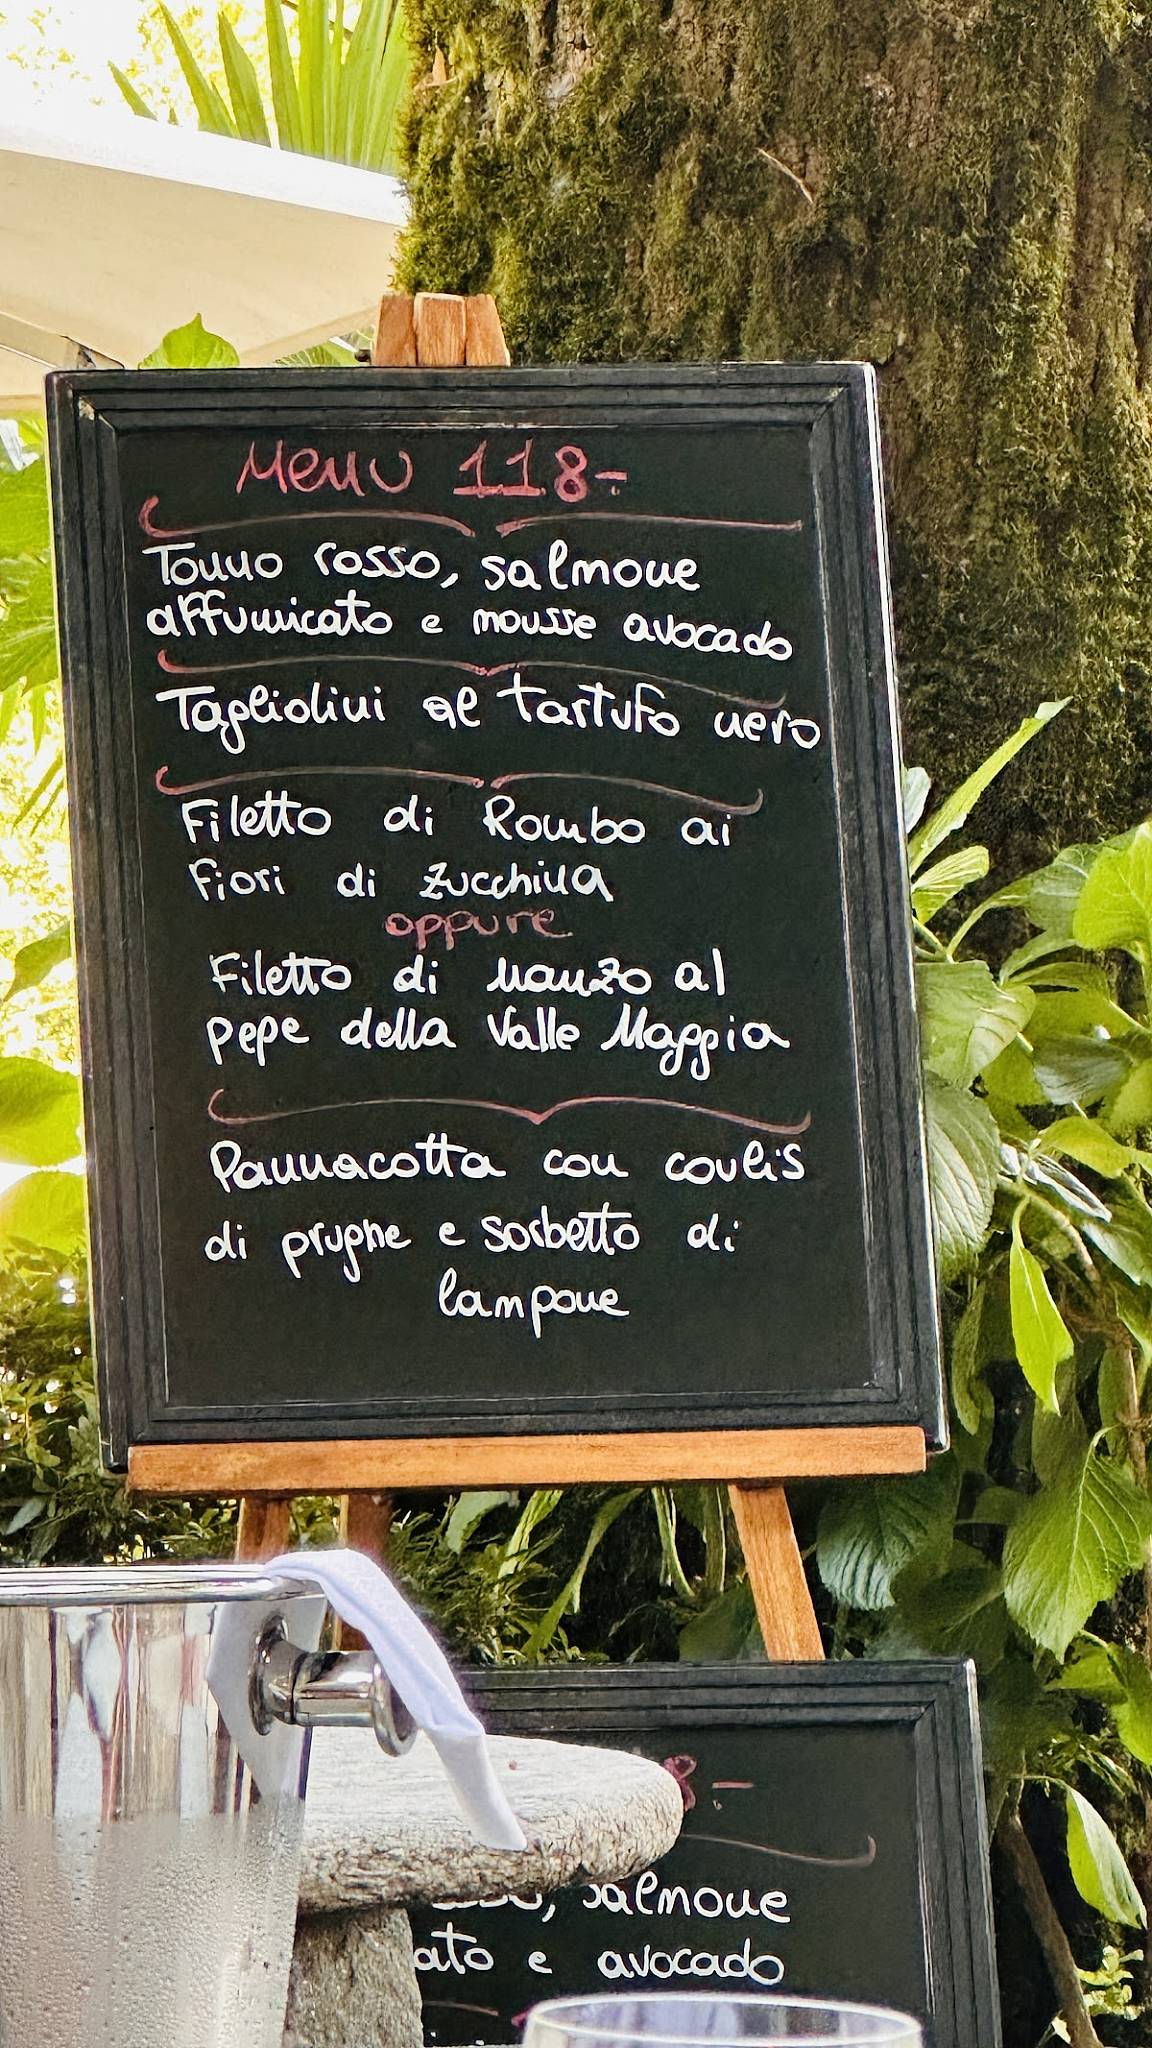 Menu 118-
Tonno rosso, salmone
affumicato e mousse avocado
Tagliolini al tartufo nero
Filetto di Rombo ai
fiori di zucchina
oppure
Filetto di manzo al
pepe della Valle Maggia
Pannacotta con coulis
di prugne e sorbetto di
lampone
8-
salmone
ato e avocado